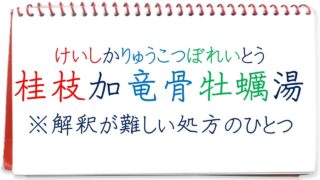 けいしかりゅうこつぼれいとう
桂枝加竜骨牡蠣湯
※解釈が難しい処方のひとつ